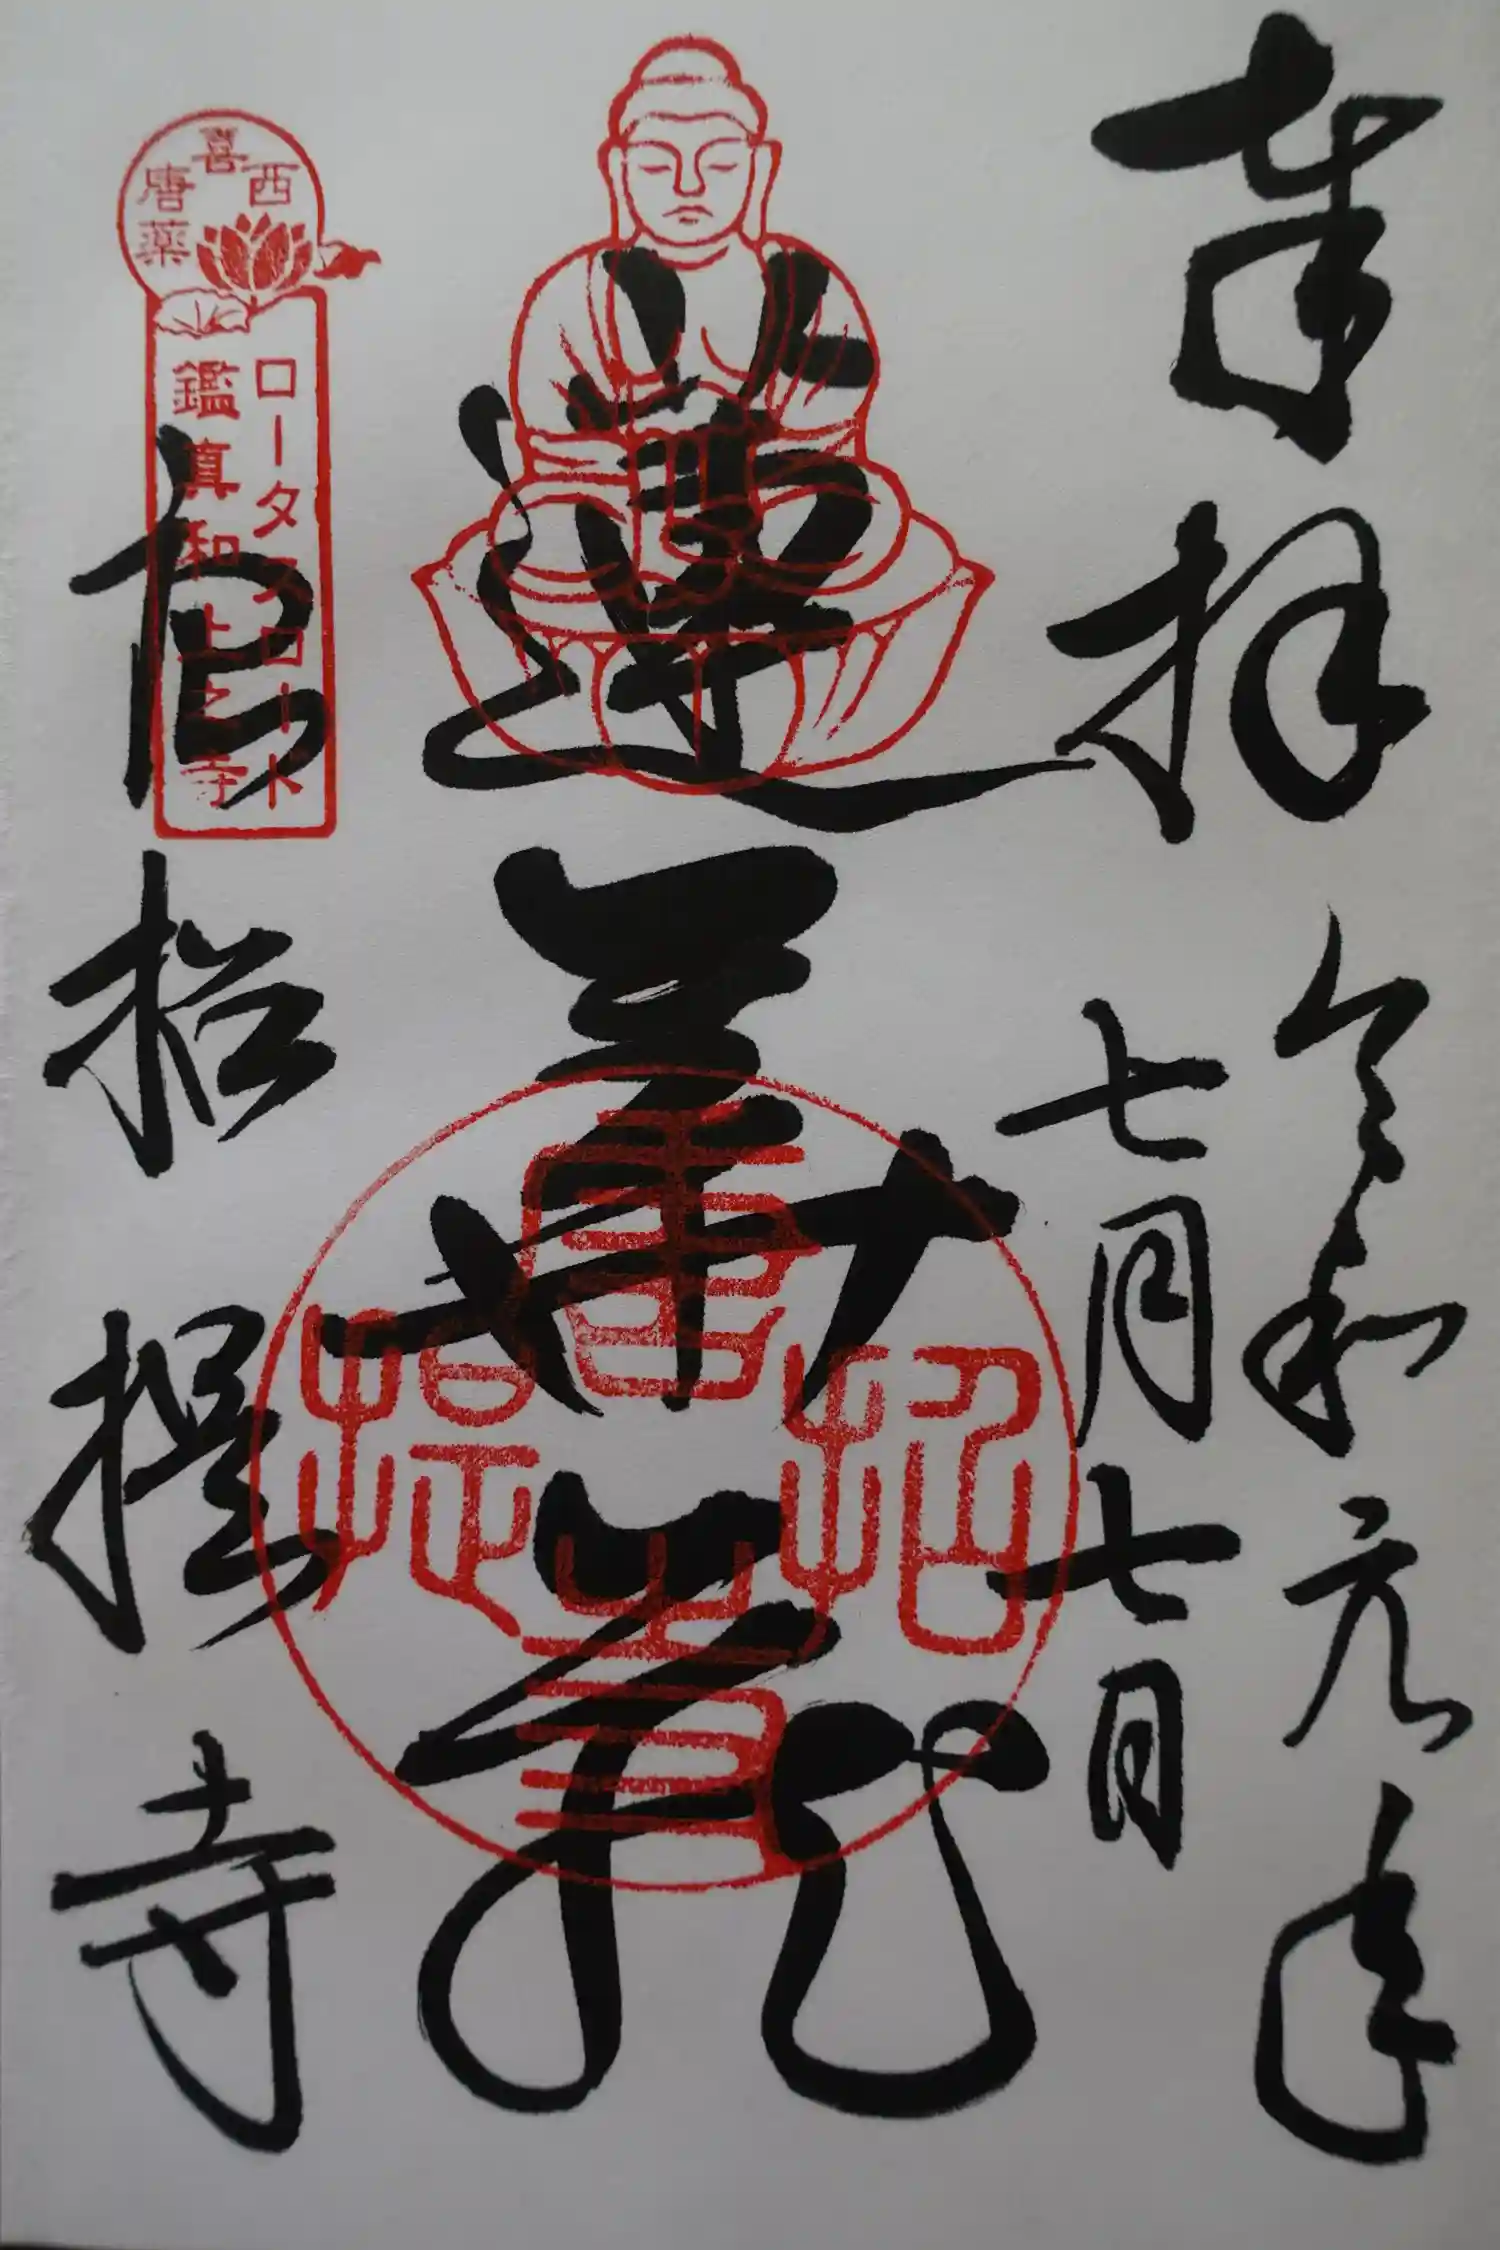 奉拝
令和元年
七月七日
蓮華
唐招提寺
西
喜
唐
薬
ロータスロード
鑑真和上之寺
唐招提寺